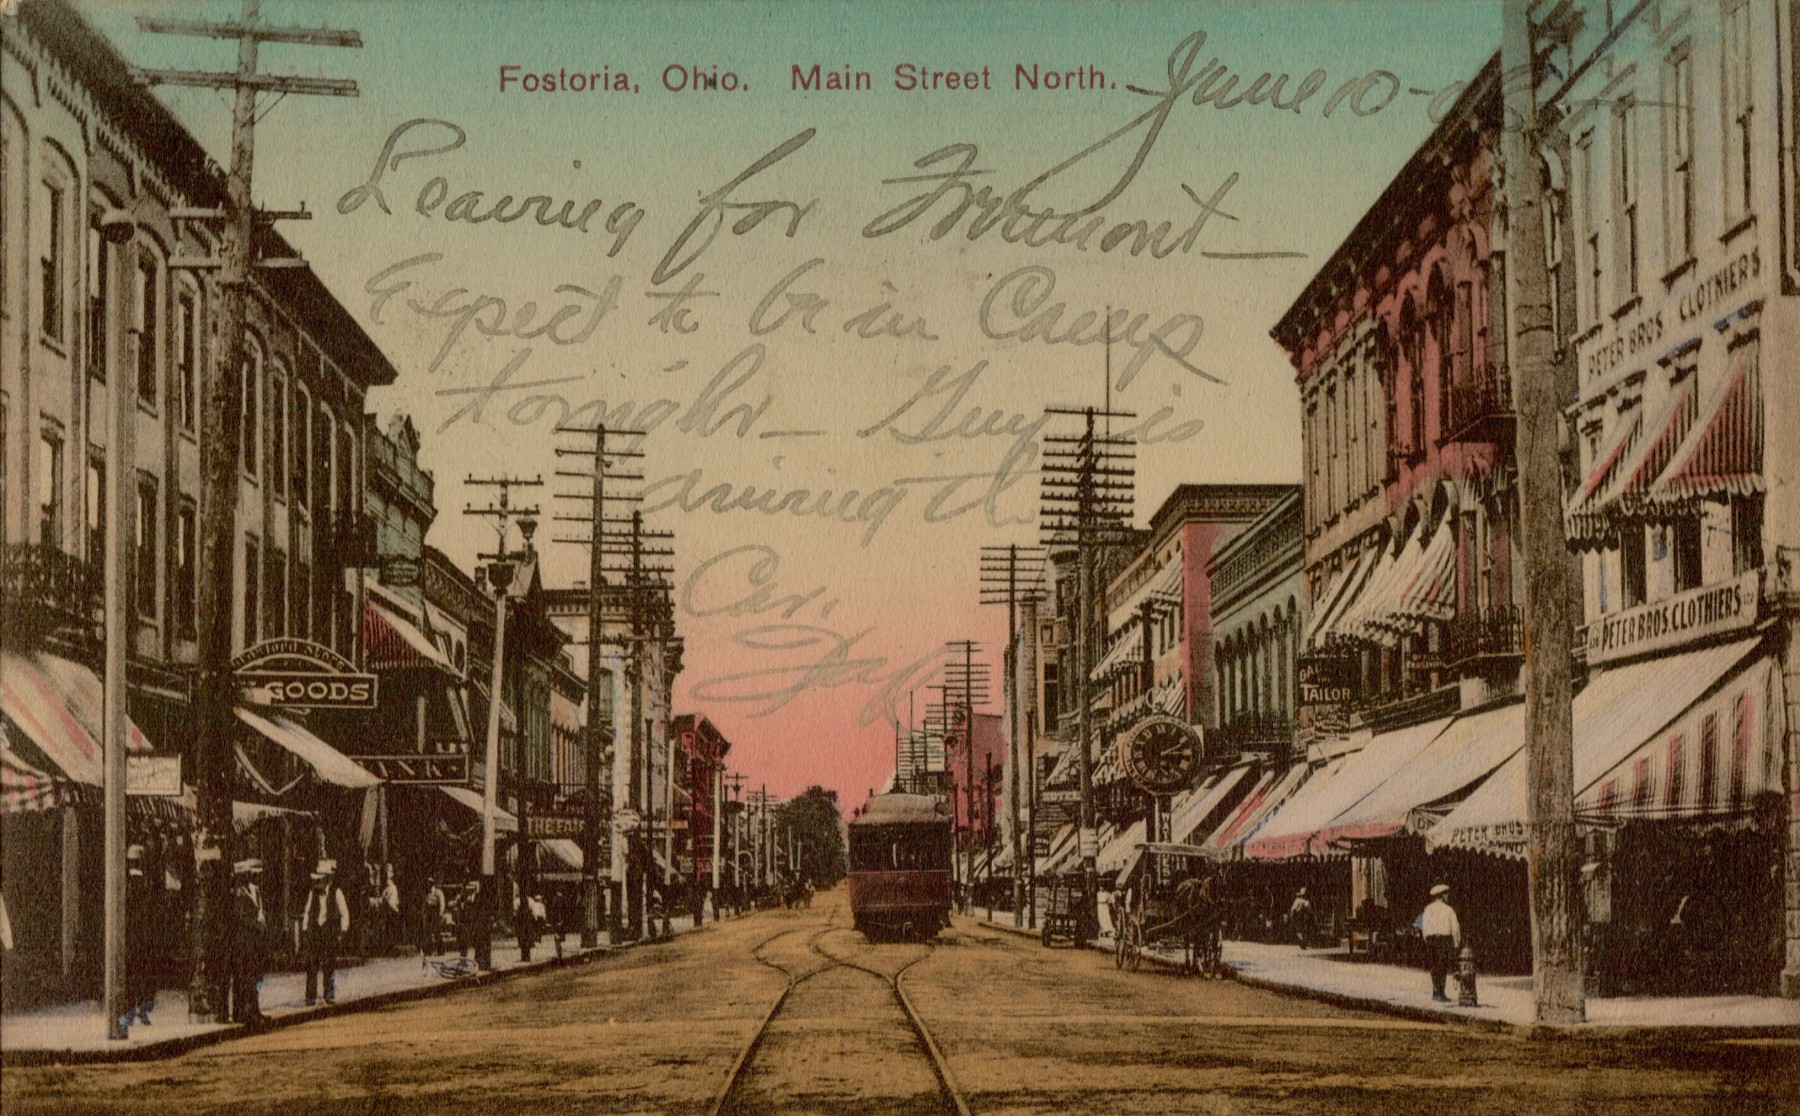 Fostoria, Ohio. Main Street North.
June 10-
Leaving for Fremont—
Expect to be in Camp
tonight — Guy is
driving the
Car.
PETER BROS CLOTHIERS
PETER BROS. CLOTHIERS
PETER BROS
GOODS
TAILOR
THE FAIR